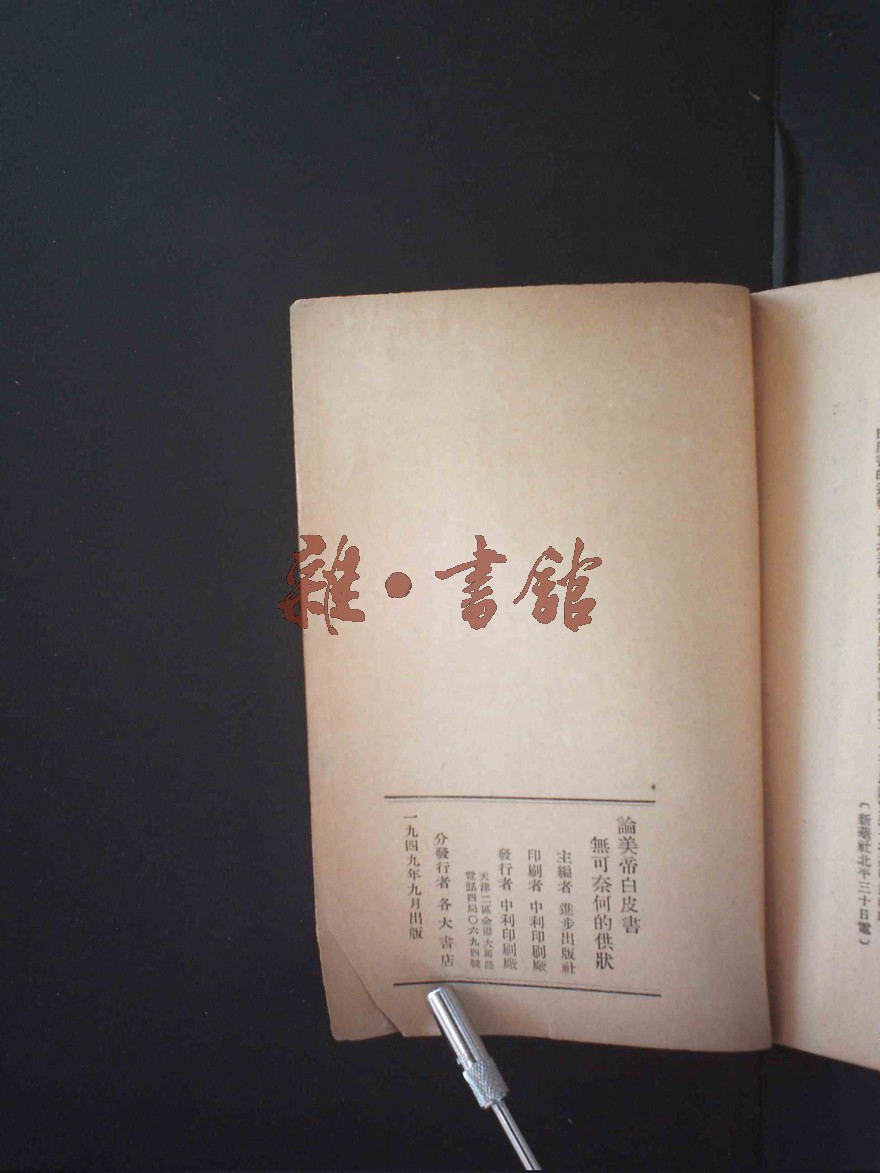 （新華社北平三十日電）
論美帝白皮書
無可奈何的供狀
主編者 進步出版社
印刷者 中利印刷廠
發行者 中利印刷廠
天津二區金湯大馬路
電話四局〇六九四號
分發行者 各大書店
一九四九年九月出版
雜·書館